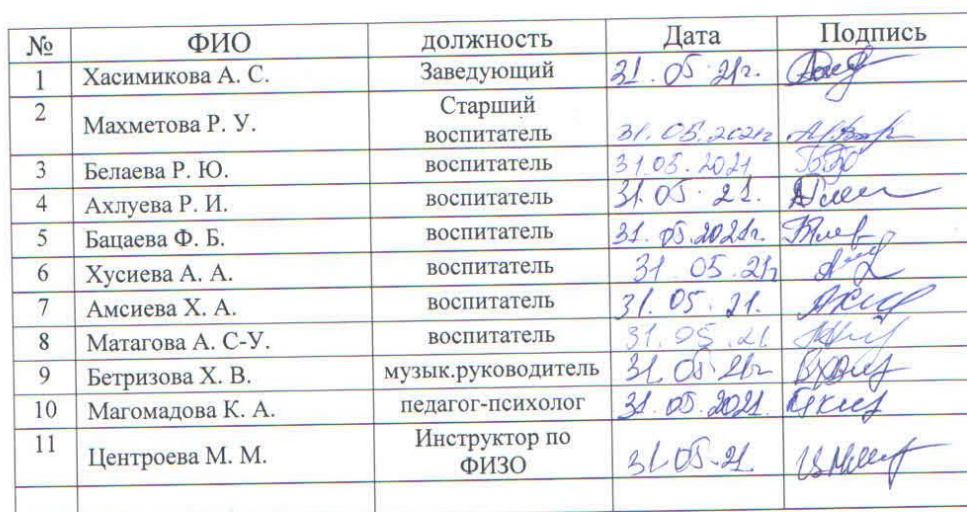 № ФИО должность Дата Подпись
1 Хасимикова А. С. Заведующий 31.05.21г.
2 Махметова Р. У. Старший
воспитатель 31.05.2021г
3 Белаева Р. Ю. воспитатель 31.05.2021
4 Ахлуева Р. И. воспитатель 31.05.21.
5 Бацаева Ф. Б. воспитатель 31.05.2021г.
6 Хусиева А. А. воспитатель 31.05.21г
7 Амсиева Х. А. воспитатель 31.05.21.
8 Матагова А. С-У. воспитатель 31.05.21
9 Бетризова Х. В. музык.руководитель 31.05.21г
10 Магомадова К. А. педагог-психолог 31.05.2021.
11 Центроева М. М. Инструктор по
ФИЗО 31.05.21.